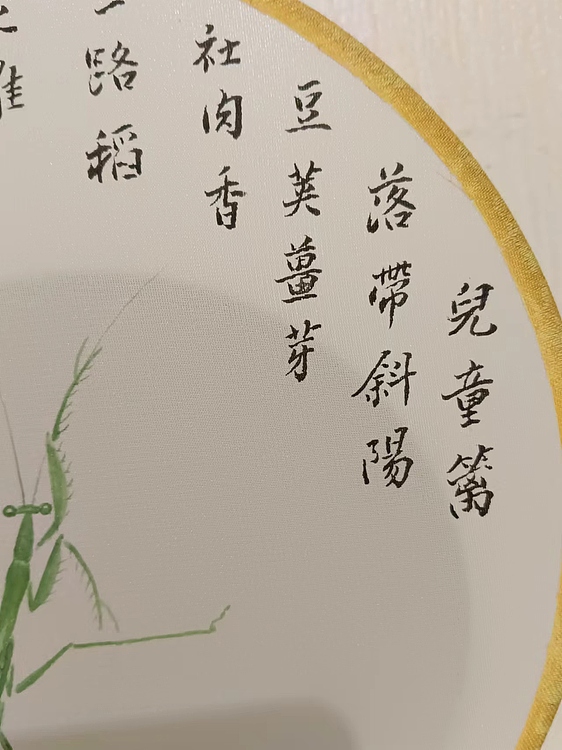 兒童篱
落帶斜陽
豆莢薑芽
社肉香
一路稻